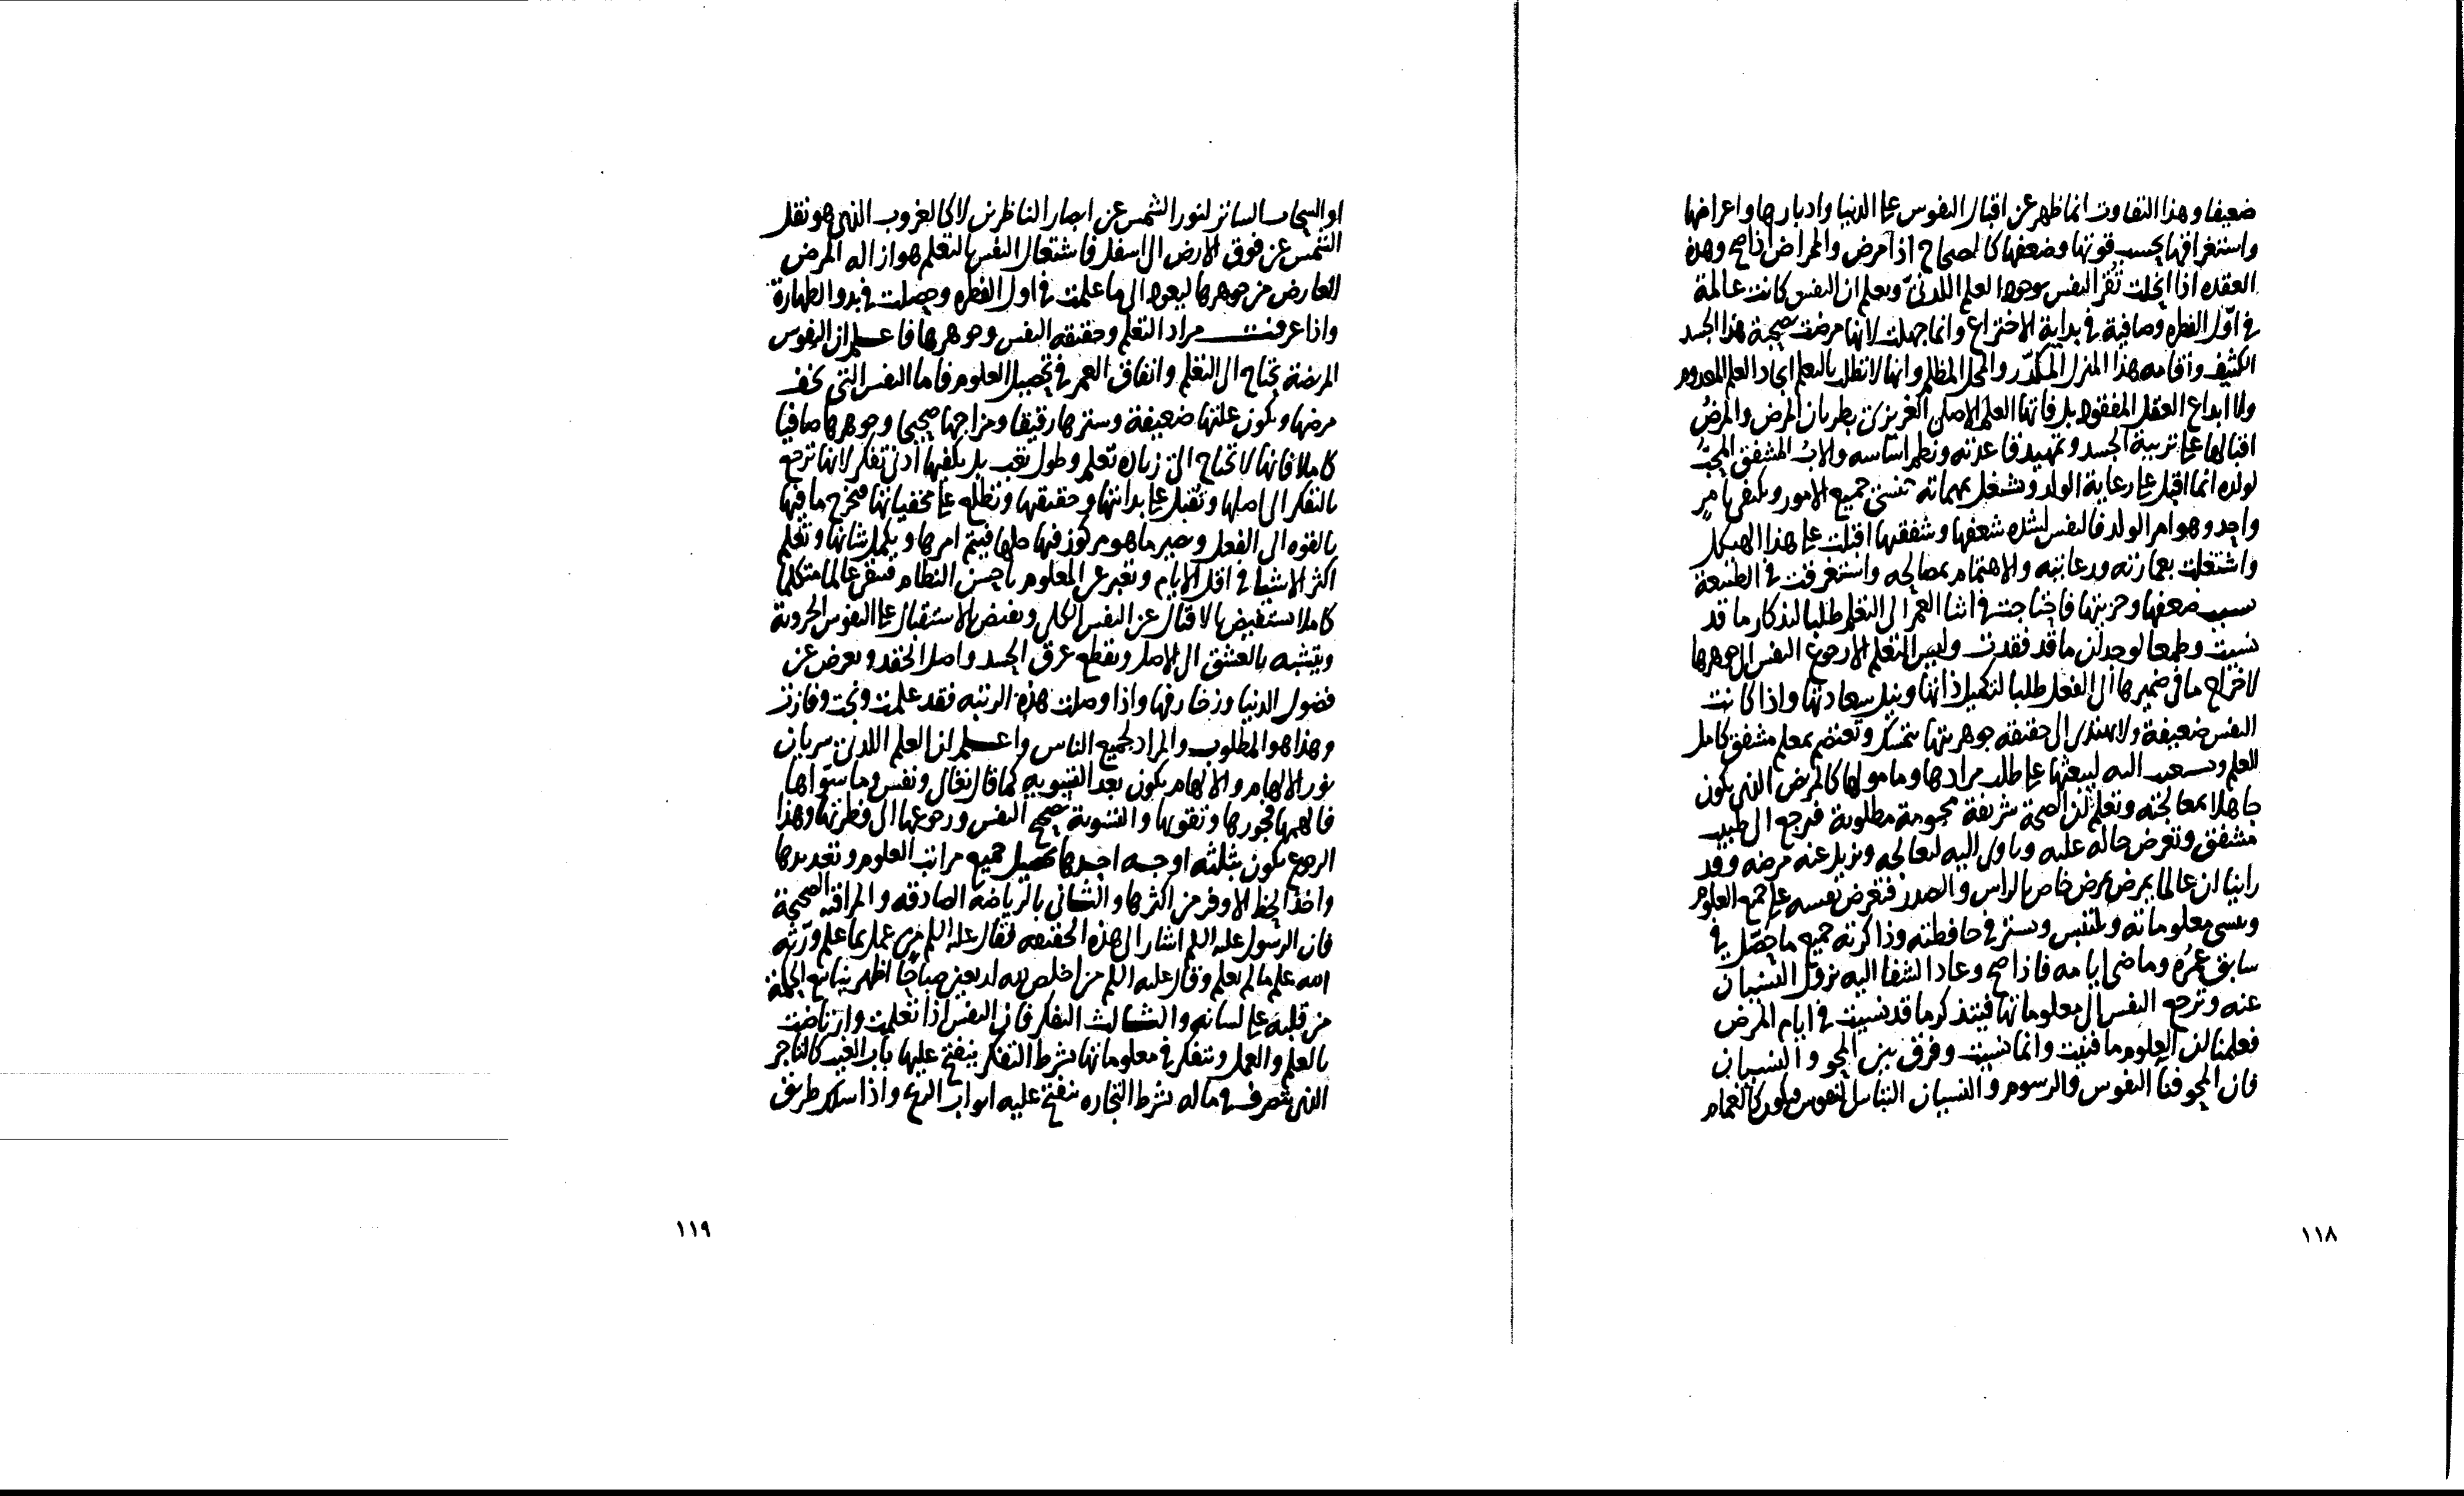 ضعيفا وهذا التفاوت انما ظهر عن اقبال النفوس على الدنيا وادبارها واعراضها
واستغراقها بحسب قوتها وضعفها كالصحاح اذا مرض والمراض اذا صح وهذه
العقده اذا انحلت تقر النفس بوجود العلم اللدنىّ وتعلم ان النفس كانت عالمة
فى اوّل الفطره وصافية فى بداية الاختراع وانما جهلت لانها مرضت بصحبة هذا الجسد
الكثيف واقامه هذا المنزل المكدّر والمحل المظلم وانها لا تطلب بالتعلم ايجاد العلم المعدوم
ولا ابداع العقل المفقود بل فاتها العلم الاصلى الغريزى بطريان المرض والمرضُ
اقبالها على تربية الجسد وتمهيد قاعدته ونظم اساسه والابُ المشفق المحبّ
لولده انما اقبل على رعاية الولد وتشغل بمهماته تنسى جميع الامور ويكتفى بامرٍ
واحد وهو امر الولد فالنفس لشده شعفها وشفقتها اقبلت على هذا الهيكل
واشتغلت بعمارته ورعايته والاهتمام بمصالحه واستغرقت فى الطبيعة
بسبب ضعفها وجزيتها فاحتاجت فى اثنا العمر الى التعلم طلبا لتذكار ما قد
نسيت وطمعا لوجدان ما قد فقدت وليس التعلم الا رجوع النفس الى جوهرها
لاخراج ما فى ضميرها الى الفعل طلبا لتكميل ذاتها ونيل سعادتها واذا كانت
النفس ضعيفة ولا تهتدى الى حقيقه جوهريتها تتمسك وتعتصم بمعلم مشفق كامل
العلم وتستعين اليه ليبعثها على طلب مرادها ومامولها كالمرض الذى يكون
جاهلا بمعالجته وتعلم ان الصحة شريفة محمودة مطلوبة فيرجع الى طبيب
مشفق وتعرض حاله عليه وياوى اليه ليعالجه ويزيل عنه مرضه وقد
راينا ان عالما يمرض بمرض خاص بالراس والصدر فتعرض نفسه على جميع العلوم
وينسى معلوماته ويلتبس ويستر فى حافظته وذاكرته جميع ما حصّل فى
سابق عمره وماضى ايامه فاذا صح وعاد الشفا اليه يزول النسيان
عنه وترجع النفس الى معلوماتها فيتذكر ما قد نسيت فى ايام المرض
فعلمنا ان العلوم ما فنيت وانما نسيت وفرق بين المحو والنسيان
فان المحو فنآ النفوس والرسوم والنسيان التباس النقوس فيكون كالغمام
١١٨
او السحاب الساتر لنور الشمس عن ابصار الناظرين لا كالغروب الذى هو نقل
الشمس عن فوق الارض الى اسفل فاشتغال النفس بالتعلم هو ازاله المرض
العارض من جوهرها ليعود الى ما علمت فى اول الفطره وحصلت فى بدو الطهارة
واذا عرفت مراد التعلم وحقيقه النفس وجوهرها فاعلم ان النفوس
المريضة تحتاج الى التعلم وانفاق العمر فى تحصيل العلوم فاما النفس التى تخف
مرضها وتكون علتها ضعيفة وسترها رقيقا ومزاجها صحيحا وجوهرها صافيا
كاملا فانها لا تحتاج الى زياده تعلم وطول تعب بل يكفيها ادنى تفكر لانها ترجع
بالتفكر الى اصلها وتُقبل على بدايتها وحقيقتها وتطلع على مخفياتها فتخرج ما فيها
بالقوه الى الفعل وتصير ما هو مركوز فيها حليها فيتم امرها ويكمل شانها وتعلم
اكثر الاشيا فى اقل الايام وتعبر عن المعلوم باحسن النظام فتبقى عالما متكلما
كاملا تستفيض بالاقبال عن النفس الكلى وتفيض بالاستقبال على النفوس الجزوية
ويتشبه بالعشق الى الاصل ويقطع عرق الحسد واصل الحقد ويعرض عن
فضول الدنيا وزخارفها واذا وصلت هذه الرتبه فقد علمت ونجت وفازت
وهذا هو المطلوب والمراد لجميع الناس واعلم ان العلم اللدنى سريان
نور الالهام والالهام يكون بعد التسويه كما قال تعالى ونفس وما سوّاها
فالهمها فجورها وتقويها والتسوية تصحيح النفس ورجوعها الى فطرتها وهذا
الرجوع يكون بثلثه اوجه احدها تحصيل جميع مراتب العلوم وتعديدها
واخذ الحظ الاوفر من اكثرها والثانى بالرياضه الصادقه والمراقبه الصحيحة
فان الرسول عليه السلم اشار الى هذه الحقيقه فقال عليه السلم من عمل بما علم ورّثه
الله علم ما لم يعلم وقال عليه السلم من اخلص لله اربعين صباحًا اظهر ينابيع الحكمة
من قلبه على لسانه والثالث التفكر فان النفس اذا تعلمت وارتاضت
بالعلم والعمل وتتفكر فى معلوماتها بشرط التفكر ينفتح عليها باب الغيب كالتاجر
الذى يتصرف فى ماله بشرط التجاره تنفتح عليه ابواب الربح واذا سلك طريق
١١٩